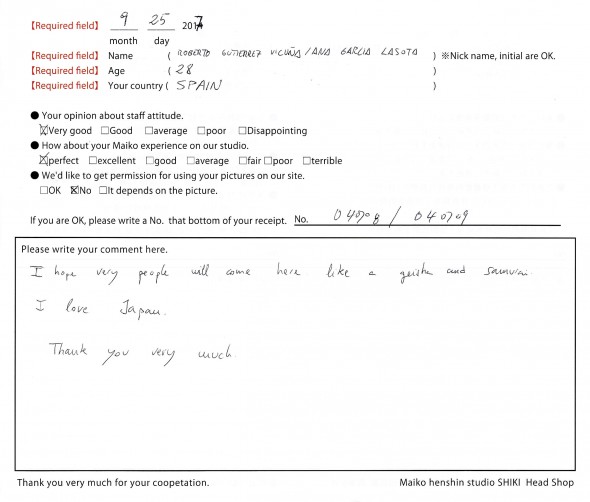 【Required field】 9 25 2017
month day
【Required field】 Name ( ROBERTO GUTIERREZ VICUÑA / ANA GARCIA LASOTA ) ※Nick name, initial are OK.
【Required field】 Age ( 28 )
【Required field】 Your country ( SPAIN )
● Your opinion about staff attitude.
☒Very good □Good □average □poor □Disappointing
● How about your Maiko experience on our studio.
☒perfect □excellent □good □average □fair □poor □terrible
● We'd like to get permission for using your pictures on our site.
□OK ☒No □It depends on the picture.
If you are OK, please write a No. that bottom of your receipt. No. 040708 / 040709
Please write your comment here.
I hope very people will come here like a geisha and samurai.
I love Japan.
Thank you very much.
Thank you very much for your coopetation. Maiko henshin studio SHIKI Head Shop